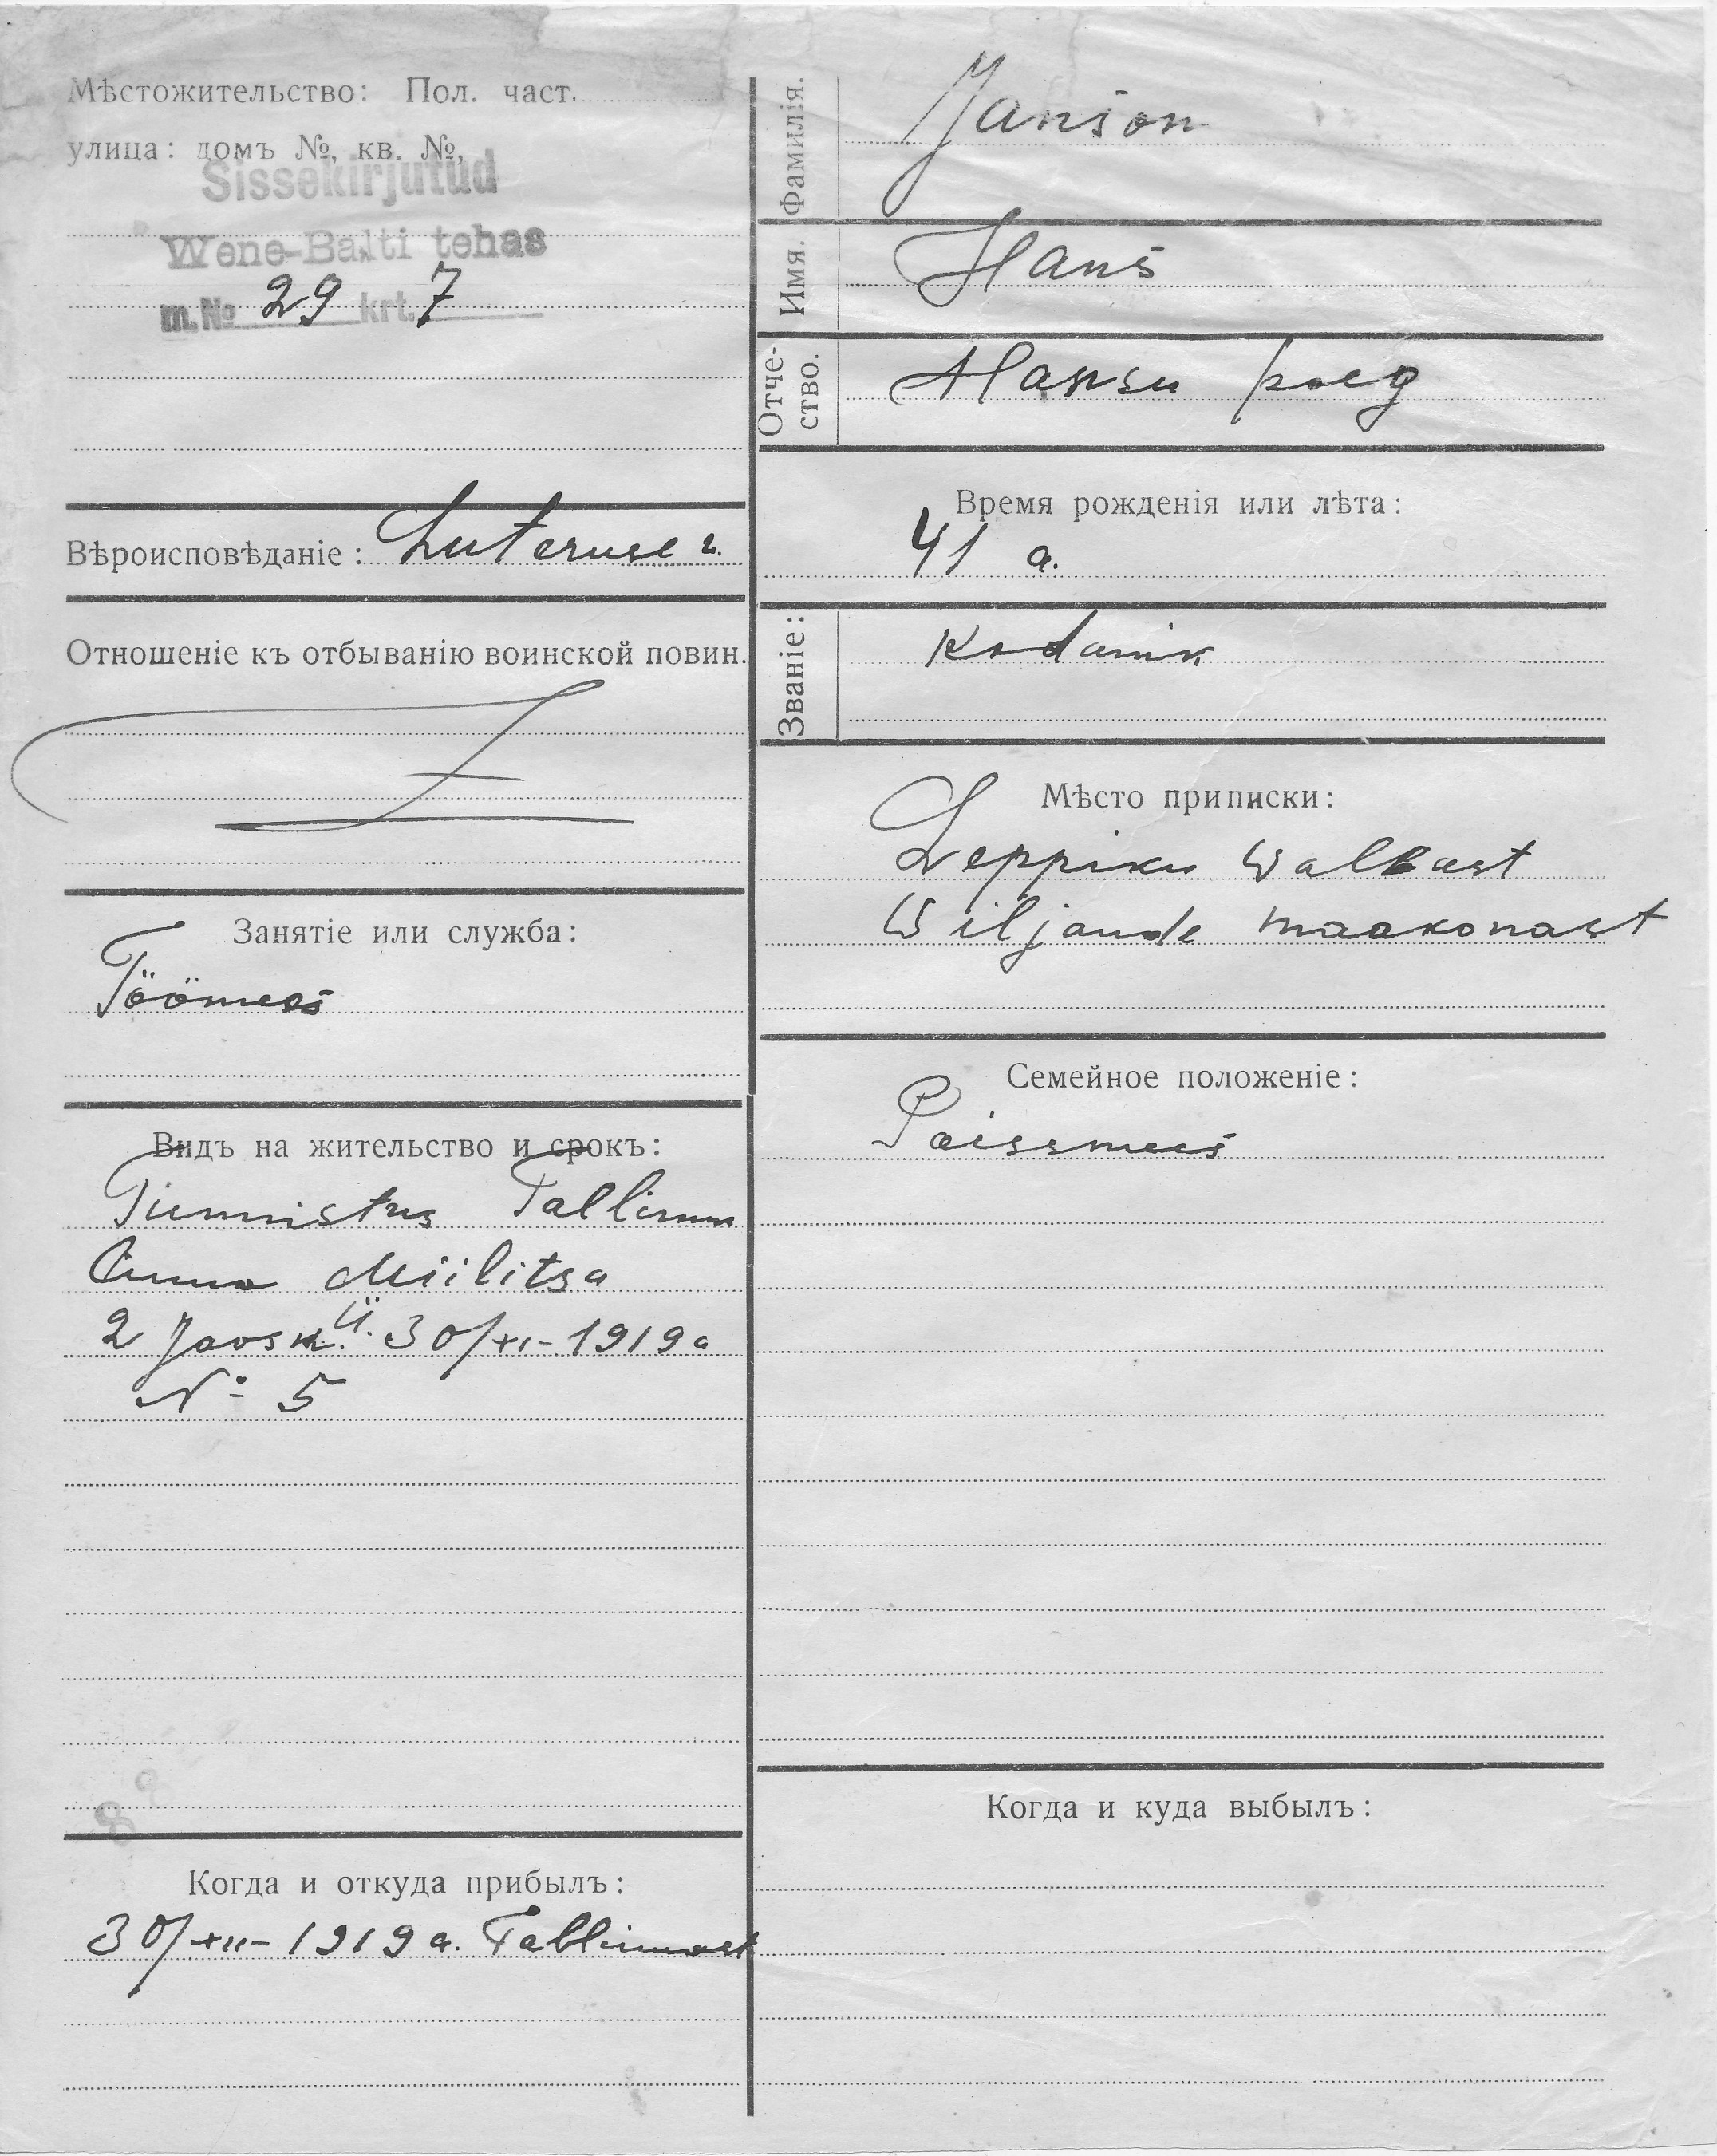 Мѣстожительство: Пол. част.
улица: домъ №, кв. №,
Sissekirjutud
Wene-Balti tehas
m. № 29 krt. 7
Вѣроисповѣданіе: Luteruse u.
Отношеніе къ отбыванію воинской повин.
Занятіе или служба:
Töömees
Видъ на жительство и срокъ:
Tunnistus Tallinna
Linna Miilitsa
2 Jaosk. Ü. 30/XI-1919 a
№ 5
Когда и откуда прибылъ:
30/XII-1919 a. Tallinnast
Фамилія.
Janson
Имя.
Hans
Отче-
ство.
Hansu poeg
Время рожденія или лѣта:
41 a.
Званіе:
Kodanik
Мѣсто приписки:
Leppiku Wallast
Wiljande maakonast
Семейное положеніе:
Poissmees
Когда и куда выбылъ: